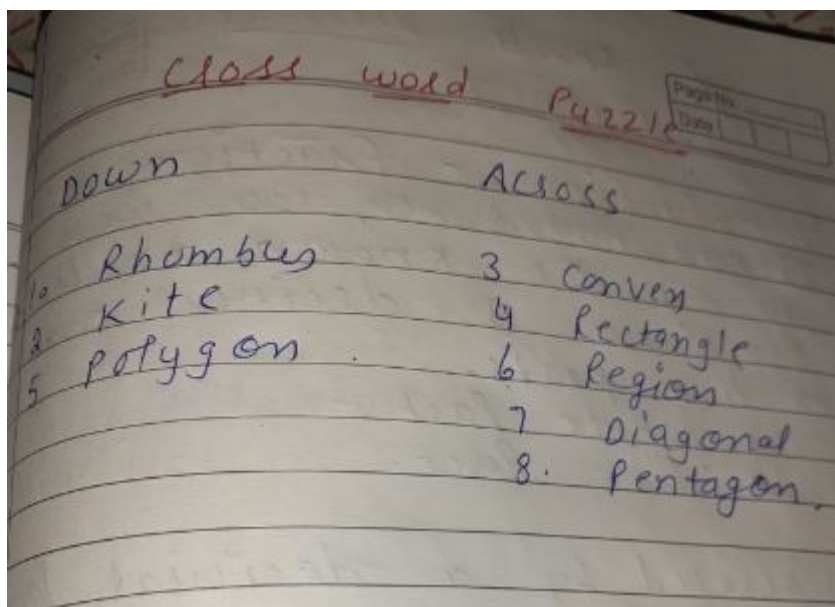 Cross word Puzzle
Page No.
Date
Down
Across
1. Rhombus
2. Kite
5 Polygon .
3 Convex
4 Rectangle
6 Region
7 Diagonal
8. Pentagon.